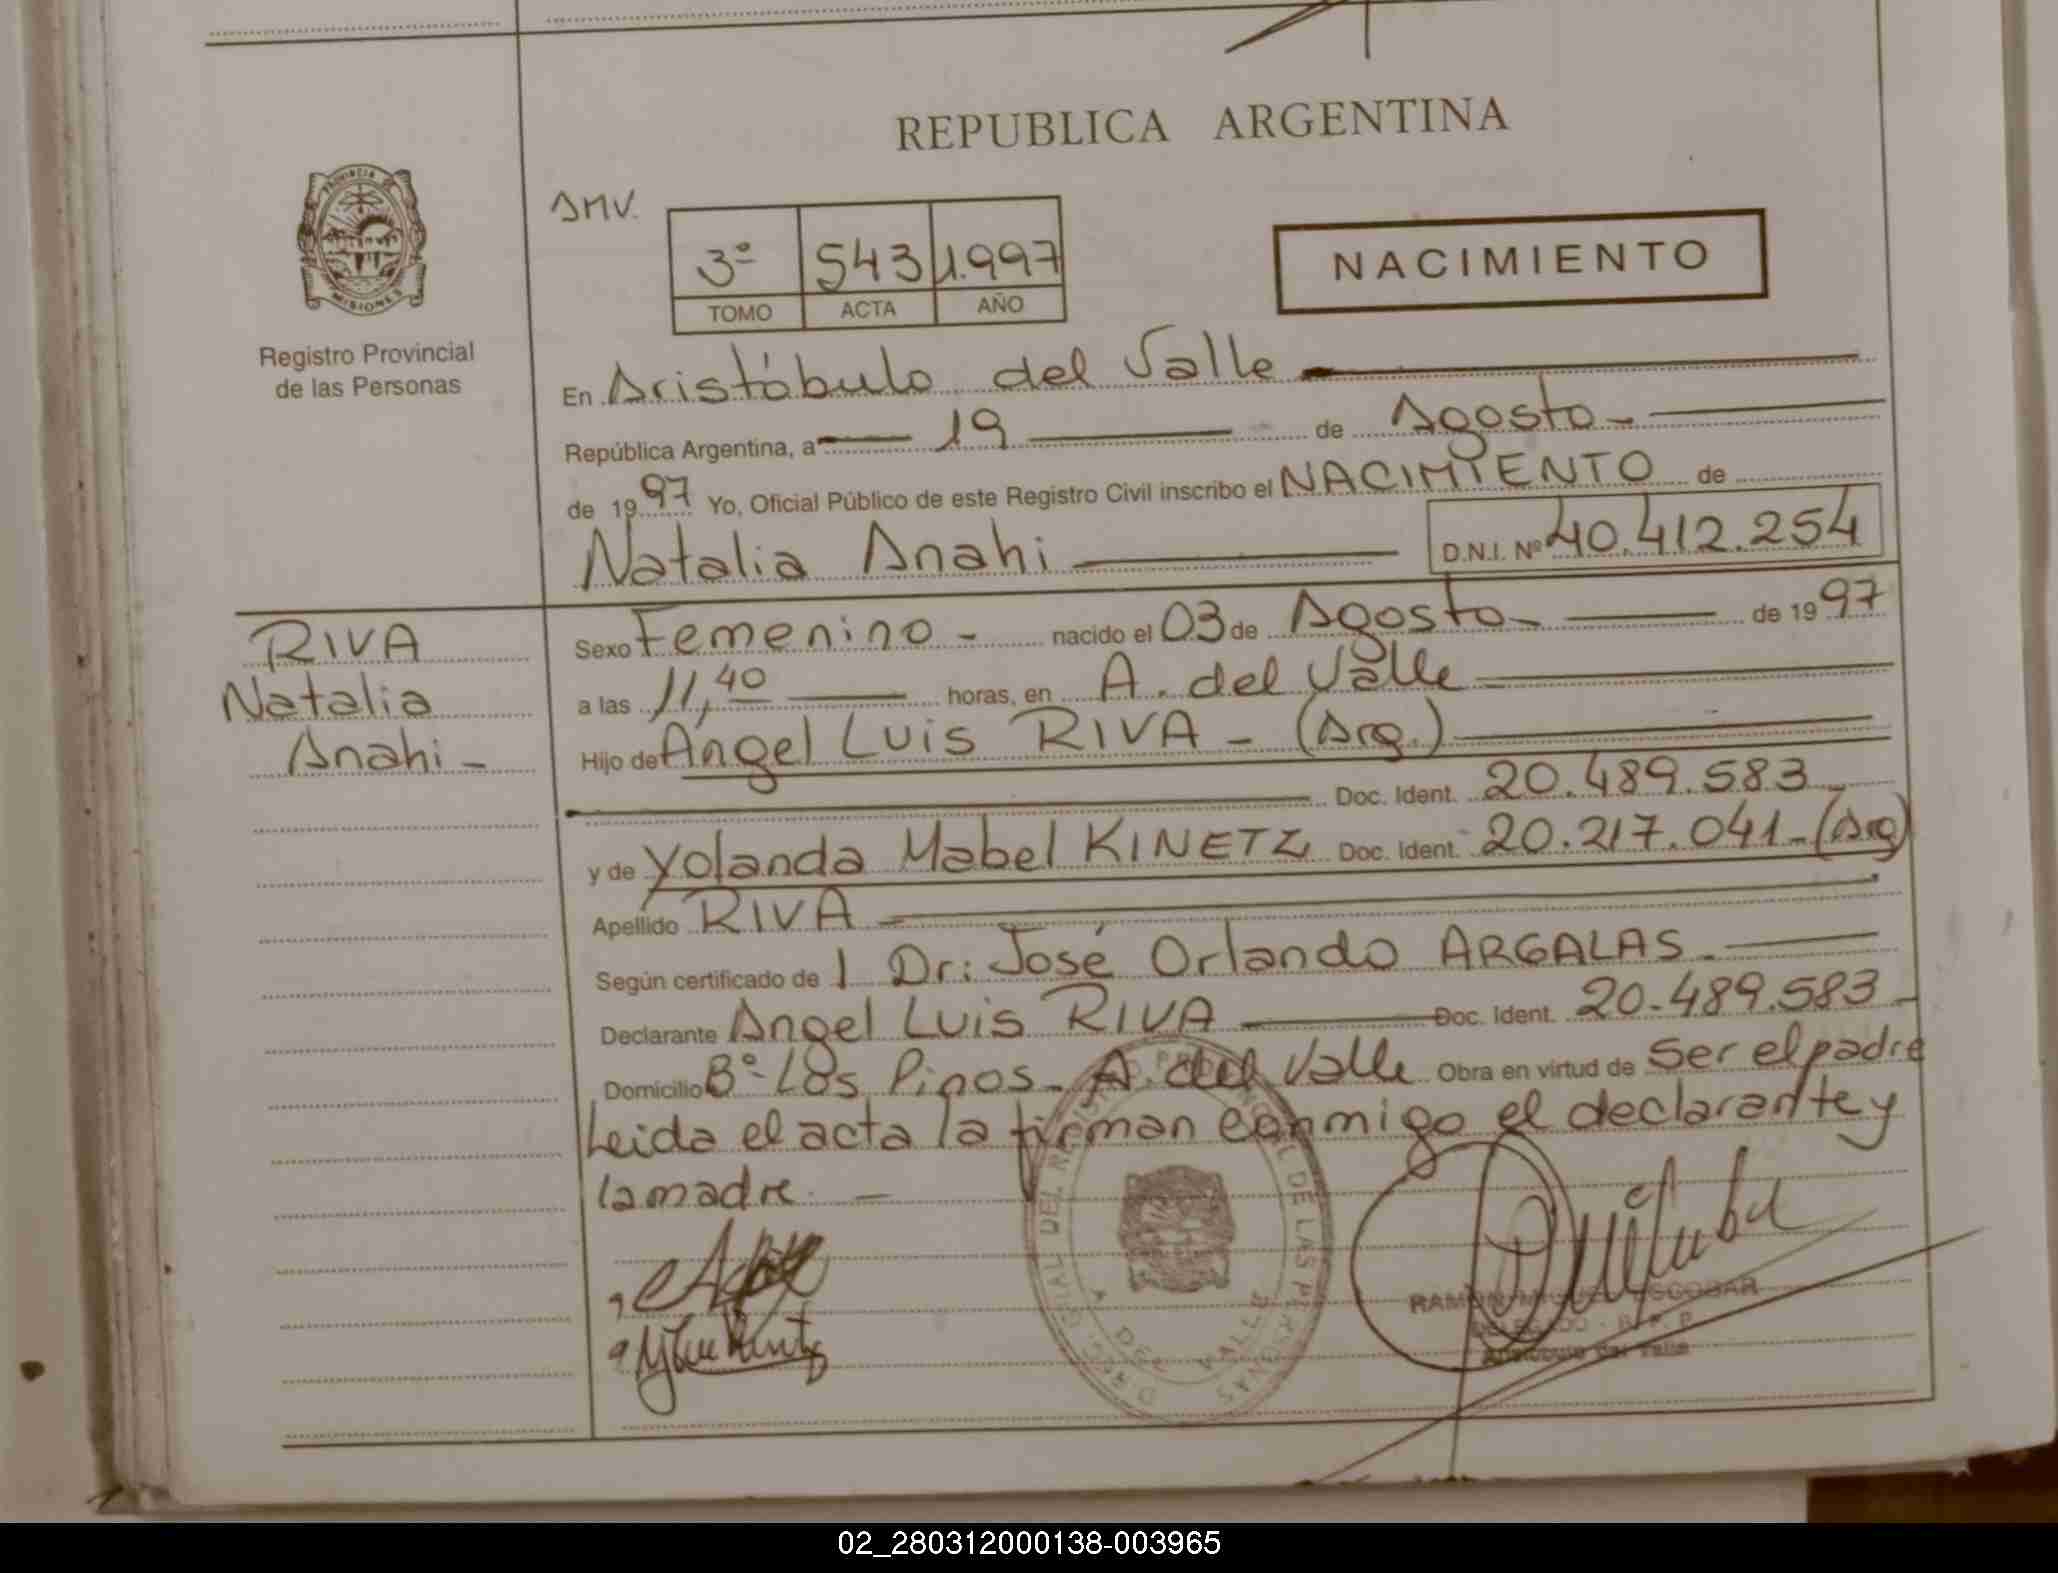 REPUBLICA ARGENTINA
PROVINCIA DE
MISIONES
Registro Provincial
de las Personas
AMV.
3º 543 1.997
TOMO ACTA AÑO
NACIMIENTO
En Aristóbulo del Valle
República Argentina, a 19 de Agosto-
de 1997 Yo, Oficial Público de este Registro Civil inscribo el NACIMIENTO de
Natalia Anahi D.N.I. Nº 40.412.254
RIVA
Natalia
Anahi-
Sexo Femenino - nacido el 03 de Agosto- de 1997
a las 11,40 horas, en A. del Valle
Hijo de Angel Luis RIVA - (Arg.)
Doc. Ident. 20.489.583
y de Yolanda Mabel KINETZ Doc. Ident. 20.217.041-(Arg)
Apellido RIVA
Según certificado de 1 Dr: José Orlando ARGALAS.
Declarante Angel Luis RIVA Doc. Ident. 20.489.583-
Domicilio Bº-Los Pinos- A. del Valle Obra en virtud de ser el padre
Leida el acta la firman conmigo el declarante y
la madre. -
RAMON MIGUEL ESCOBAR
DELEGADO - R. P. P.
Aristobulo del Valle
A. DEL VALLE
02_280312000138-003965